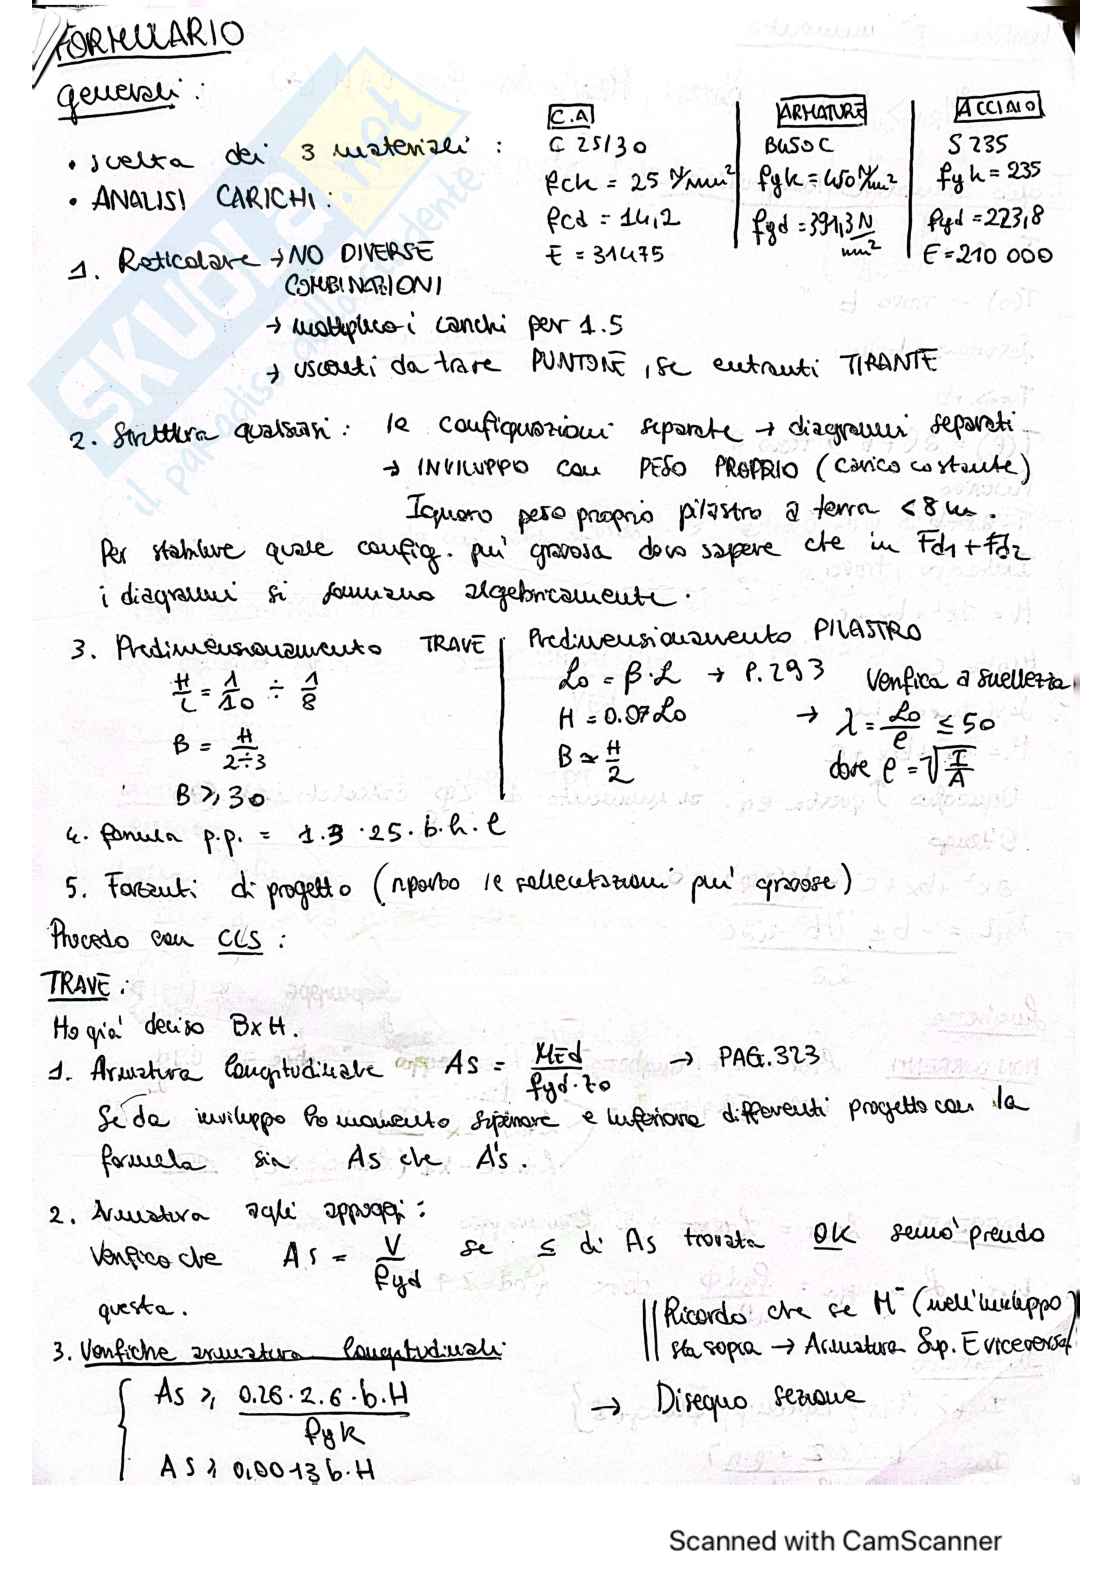 FORMULARIO
generali:
• scelta dei 3 materiali:
C.A
C 25/30
fck = 25 N/mm²
fcd = 14,2
E = 31475
ARMATURE
B450C
fyk = 450 N/mm²
fyd = 391,3 N/mm²
ACCIAIO
S 235
fyk = 235
fyd = 223,8
E = 210 000
• ANALISI CARICHI:
1. Reticolare → NO DIVERSE
COMBINAZIONI
→ moltiplico i carichi per 1.5
→ uscenti da trave PUNTONE, se entranti TIRANTE
2. Struttura qualsiasi: le configurazioni separate → diagrammi separati
→ INVILUPPO con PESO PROPRIO (carico costante)
Ignoro peso proprio pilastro a terra < 8 m.
Per stabilire quale config. più gravosa devo sapere che in Fd1 + Fd2
i diagrammi si sommano algebricamente.
3. Predimensionamento TRAVE
H/L = 1/10 ÷ 1/8
B = H/2÷3
B ≥ 30
Predimensionamento PILASTRO
Lo = β·L → P.293
H = 0.07 Lo
B ≃ H/2
Verifica a snellezza
→ λ = Lo/ρ ≤ 50
dove ρ = √I/A
4. formula p.p. = 1.3 · 25 · b · h · l
5. Forzanti di progetto (riporto le sollecitazioni più gravose)
Procedo con CLS:
TRAVE:
Ho già deciso B x H.
1. Armatura longitudinale As = MEd/fyd·zo → PAG.323
Se da inviluppo ho momento superiore e inferiore differenti progetto con la
formula sia As che A's.
2. Armatura agli appoggi:
Verifico che As = V/fyd se ≤ di As trovata OK sennò prendo
questa.
|| Ricordo che se M⁻ (nell'inviluppo)
sta sopra → Armatura Sup. E viceversa.
3. Verifiche armatura longitudinali:
As ≥ 0.26 · 2.6 · b·H/fyk
As ≥ 0,0013 b·H
→ Disegno sezione
SKUOLA.net
il paradiso dello studente
Scanned with CamScanner